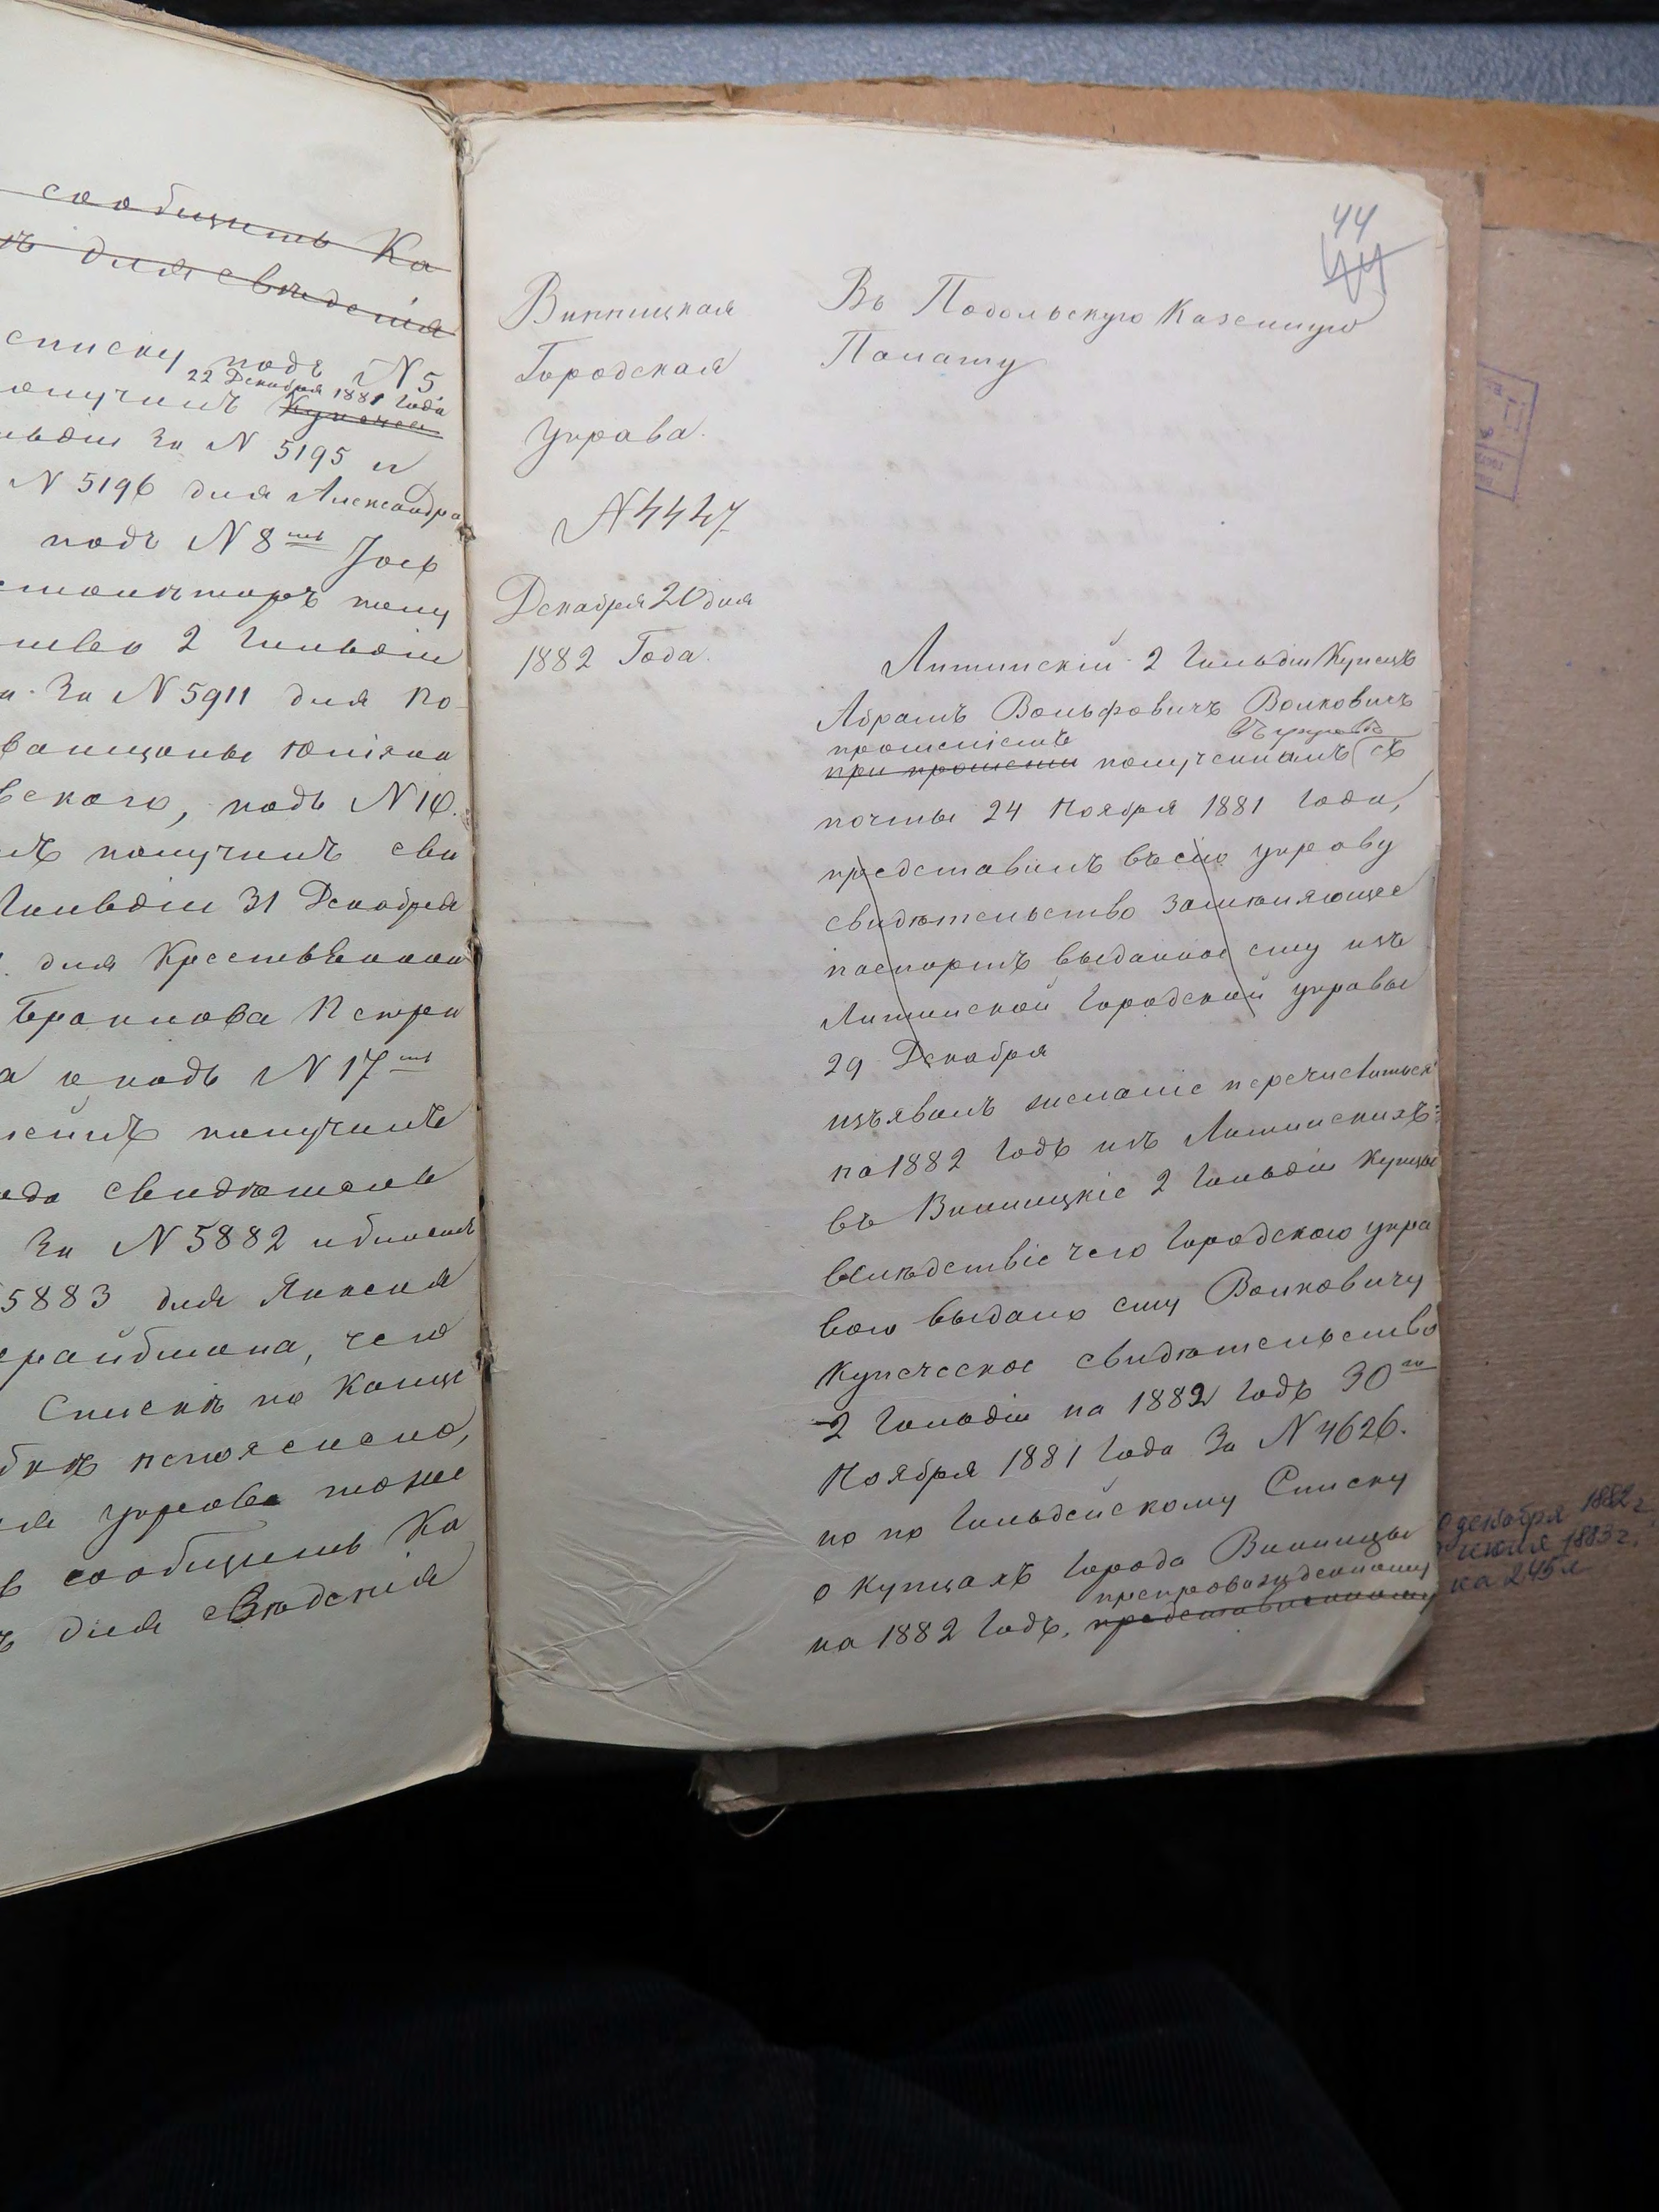 сообщить Ка
для сведения
списку подъ N 5
22 Декабря 1881 Года
получилъ Купечес
льдіи За N 5195 и
N 5196 для Александра
подъ N 8мъ Іосъ
полу
2 Гильдіи
За N 5911 для По
ванщины Юліяна
вскаго, подъ N 10.
лъ получилъ сви
Гильдіи 31 Декабря
для Крестьянина
Петра
и подъ N 17мъ
получилъ
года свидѣтель
За N 5882 и билетъ
5883 для Янкеля
райдмана, чего
Спискѣ по Канце
непояснено,
управа
сообщить Ка
для Свѣдѣнія
44
44
Винницкая
Городская
Управа.
N 4447
Декабря 20 дня
1882 Года.
Въ Подольскую Казенную
Палату
Литинскій 2 Гильдіи Купецъ
Абрамъ Вольфовичъ Волковичъ
прошеніемъ въ управѣ
при прошеніи полученнымъ съ
почты 24 Ноября 1881 Года,
представилъ въ сію управу
свидѣтельство замѣняющее
паспортъ выданное ему изъ
Литинской Городской управы
29 Декабря
изъявилъ желаніе перечислиться
на 1882 Годъ изъ Литинскихъ
въ Винницкіе 2 Гильдіи Купцы
вслѣдствіе чего Городскою упра
вою выдано ему Волковичу
Купеческое свидѣтельство
2 Гильдіи на 1882 Годъ 30го
Ноября 1881 Года За N 4626.
но по Гильдейскому Списку
о купцахъ Города Винницы
препровожденному
на 1882 Годъ, представленному
декабря 1882 г.
июля 1883 г.
на 245 л